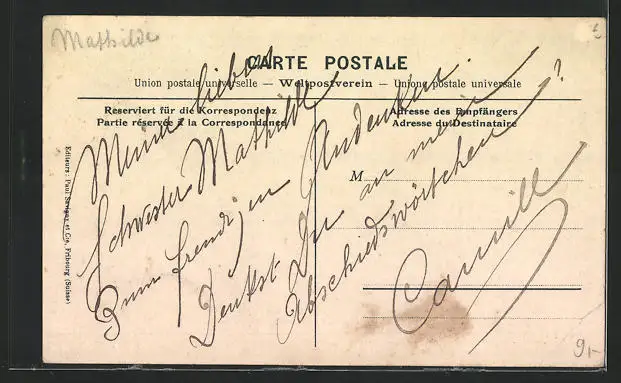 Mathilde
CARTE POSTALE
Union postale universelle — Weltpostverein — Unione postale universale
Reserviert für die Korrespondenz
Partie réservée à la Correspondance
Adresse des Empfängers
Adresse du Destinataire
M
Editeurs: Paul Savigny et Cie, Fribourg (Suisse)
Meiner lieben
Schwester Mathilde
Zum freudigen Andenken.
Denkst Du an meine
Abschiedswörtchen?
Camill
9,-